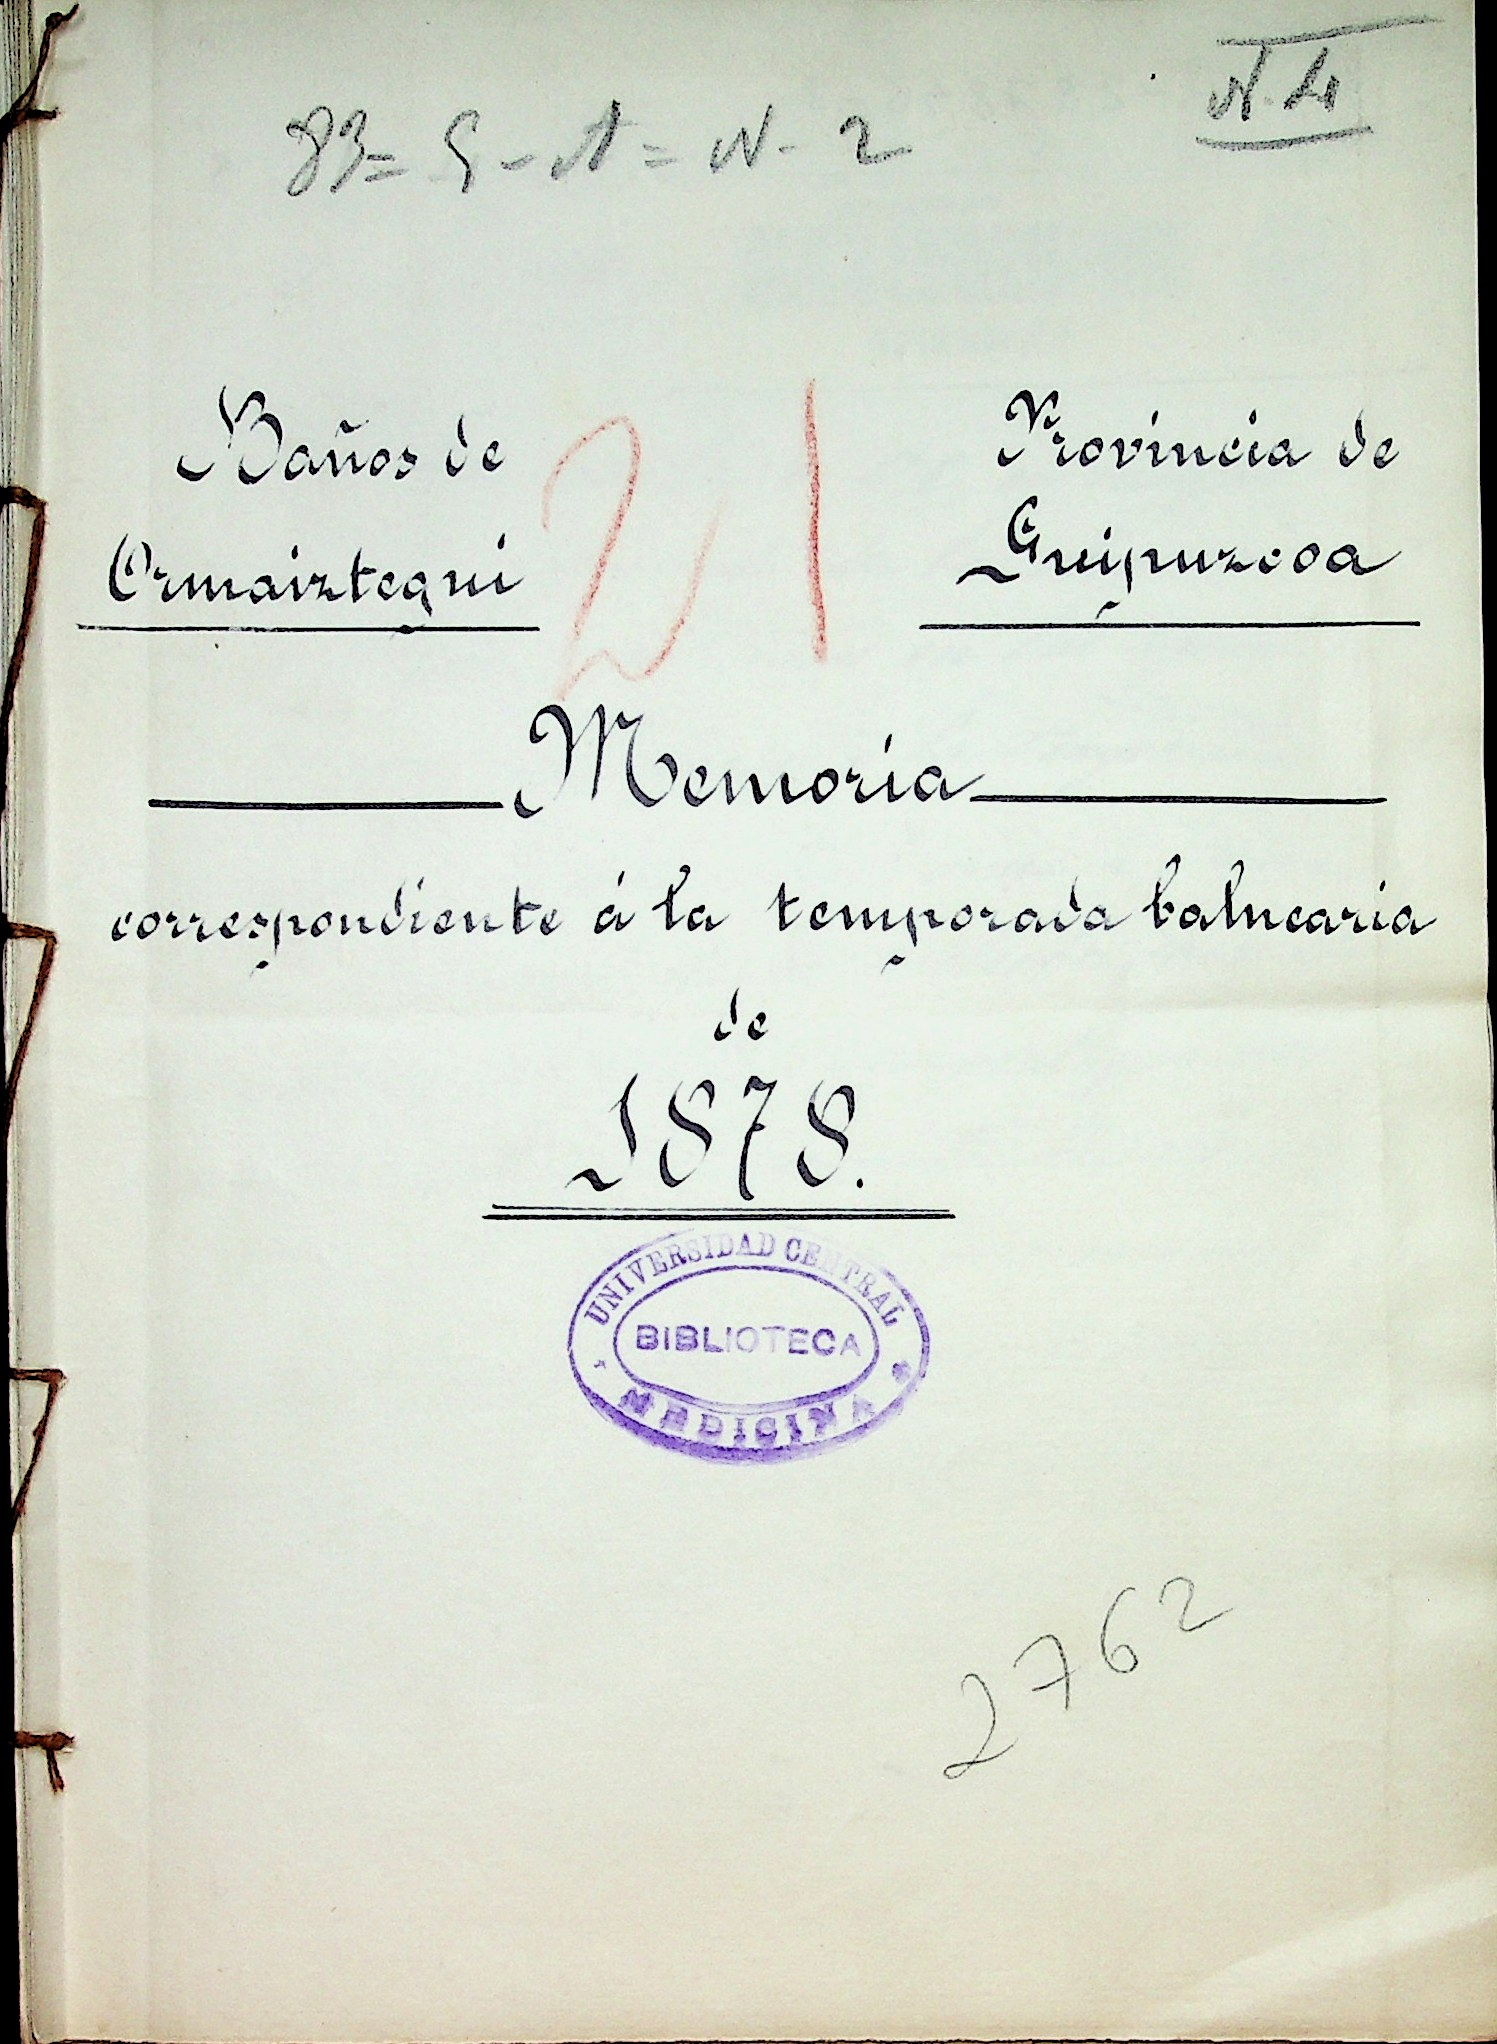 N. 4
83 = 5 - A = N - 2
Baños de
Ormaiztegui
21
Provincia de
Guipuzcoa
Memoria
correspondiente á la temporada balnearia
de
1878.
UNIVERSIDAD CENTRAL
BIBLIOTECA
MEDICINA
2762